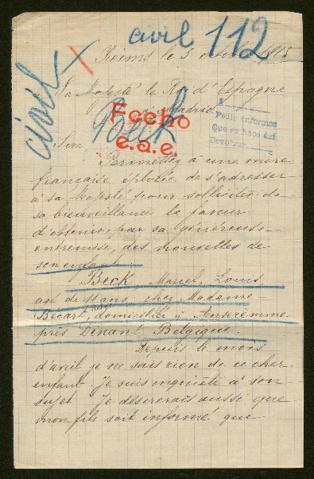 civil 112
civil
Reims le 5 1915
Sa Majesté le Roi d'Espagne
Madrid
Beck
Fecho
e.a.e.
Pedir informes
Sire
Permettez à une mère
française éplorée de s'adresser
à sa Majesté pour solliciter de
sa bienveillance la faveur
d'obtenir, par sa généreuse
entremise, des nouvelles de
son enfant.
Beck, Marcel, Louis
âgé de ans chez Madame
Bécart, domiciliée à Anseremme
près Dinant Belgique.
Depuis le mois
d'avril je ne sais rien de ce cher
enfant. Je suis inquiète à son
sujet. Je désirerais aussi que
mon fils soit informé que